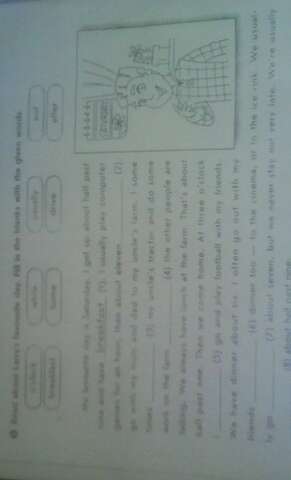 Read about Larry's favourite day. Fill in the blanks with the given words.
o'clock while usually and
breakfast home drive after
My favourite day is Saturday. I get up about half past
nine and have breakfast (1). I usually play computer
games for an hour, then about eleven (2)
go with my mum and dad to my uncle's farm. I some
times (3) my uncle's tractor and do some
work on the farm (4) the other people are
talking. We always have lunch at the farm. That's about
half past one. Then we come home. At three o'clock
I (5) go and play football with my friends.
We have dinner about six. I often go out with my
friends (6) dinner too — to the cinema, or to the ice-rink. We usual-
ly go (7) about seven, but we never stay out very late. We're usually
(8) about half past nine.